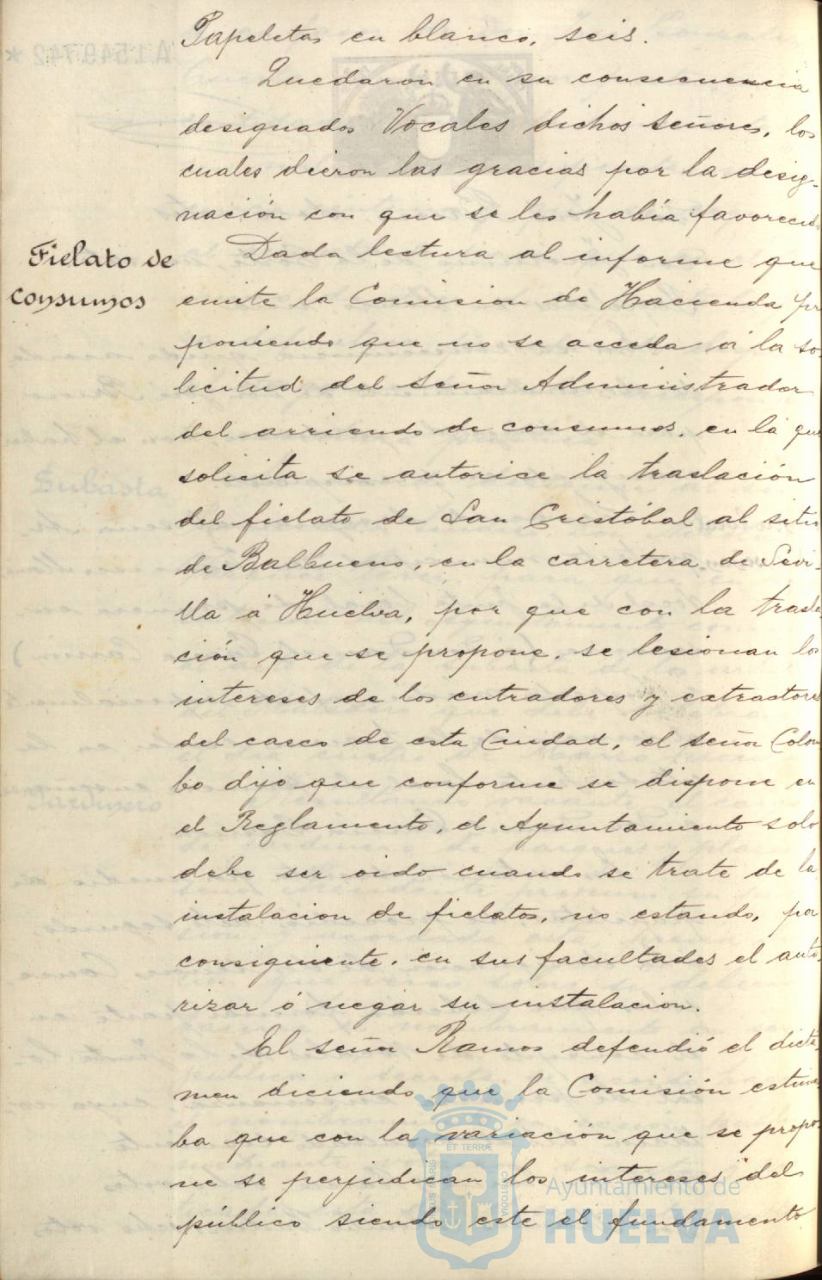 Papeletas en blanco, seis.
Quedaron en su consecuencia
designados Vocales dichos señores, los
cuales dieron las gracias por la desig-
nación con que se les había favorecido
Fielato de
consumos
Dada lectura al informe que
emite la Comision de Hacienda pr
poniendo que no se acceda á la so
licitud del señor Administrador
del arriendo de consumos, en la que
solicita se autorice la traslación
del fielato de San Cristóbal al sitio
de Balbueno, en la carretera de Sevi-
lla á Huelva, por que con la trasla
ción que se propone, se lesionan los
intereses de los entradores y extractores
del casco de esta Ciudad, el señor Colom
bo dijo que conforme se dispone en
el Reglamento, el Ayuntamiento solo
debe ser oido cuando se trate de la
instalacion de fielatos, no estando, por
consiguiente, en sus facultades el auto
rizar ó negar su instalacion.
El señor Ramos defendió el dicta
men diciendo que la Comisión estima
ba que con la variación que se propo
ne se perjudican los intereses del
público siendo este el fundamento
Ayuntamiento de
HUELVA
A.1.549.742 *
Subasta